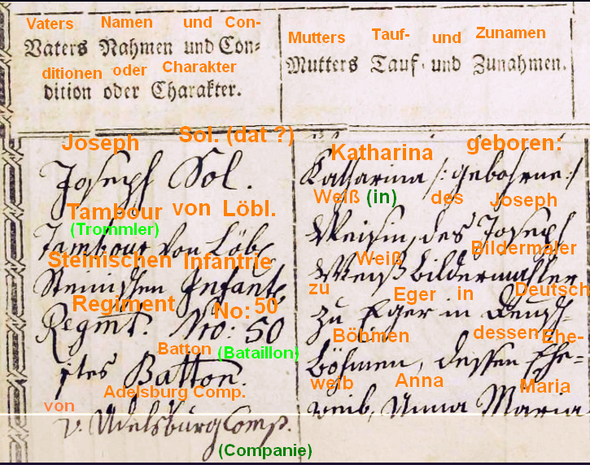 Vaters Namen und Con-
Vaters Nahmen und Con-
ditionen oder Charakter
dition oder Charakter.
Joseph Sol. (dat ?)
Joseph Sol.
Tambour von Löbl.
(Trommler)
Tambour von Löbl
Steinischen Infantrie
Steinischen Infant
Regiment No: 50
Regmt. No: 50
Batton (Bataillon)
Batton.
Adelsburg Comp.
von
v. Adelsburg Comp.
(Companie)
Mutters Tauf- und Zunamen
Mutters Tauf- und Zunahmen.
Katharina geboren:
Katharina /: gebohrne :/
Weiß (in) des Joseph
Weisin, des Joseph
Weiß Bildermaler
Weiß bildermahler
zu Eger in Deutsch
zu Eger in Deutsch-
Böhmen dessen Ehe-
böhmen, dessen Ehe-
weib Anna Maria
weib, Anna Maria